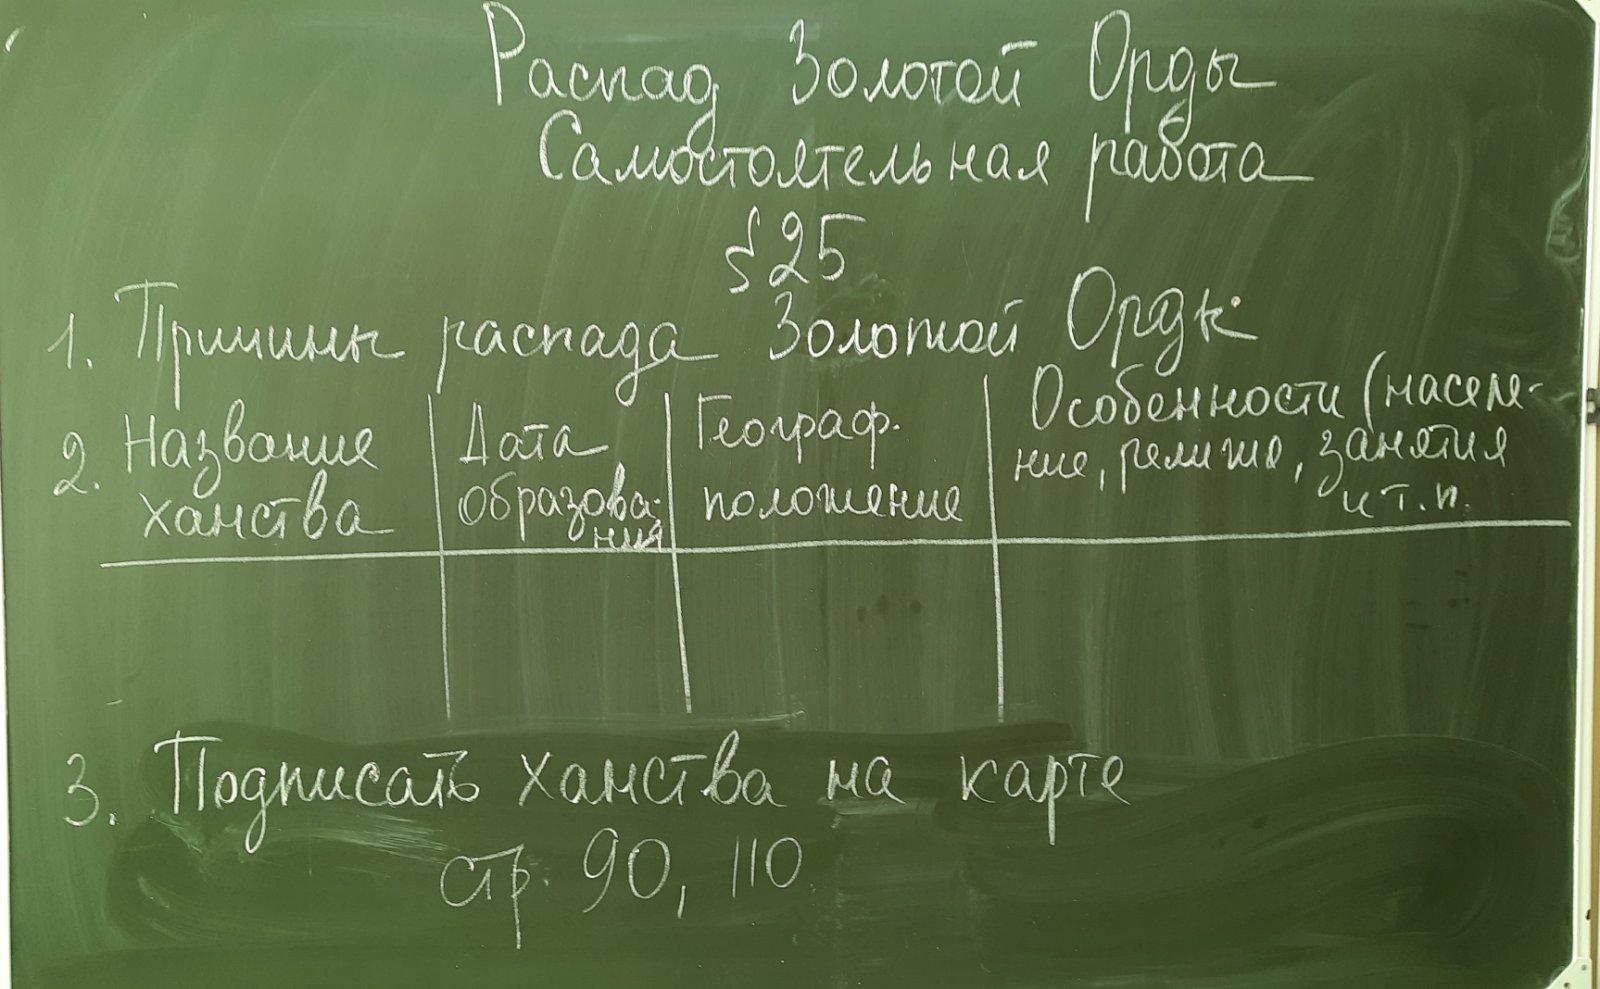 Распад Золотой Орды
Самостоятельная работа
§25
1. Причины распада Золотой Орды
2. Название ханства
Дата образова-
ния
Географ.
положение
Особенности (населе-
ние, религию, занятия
и т.п.
3. Подписать ханства на карте
стр. 90, 110